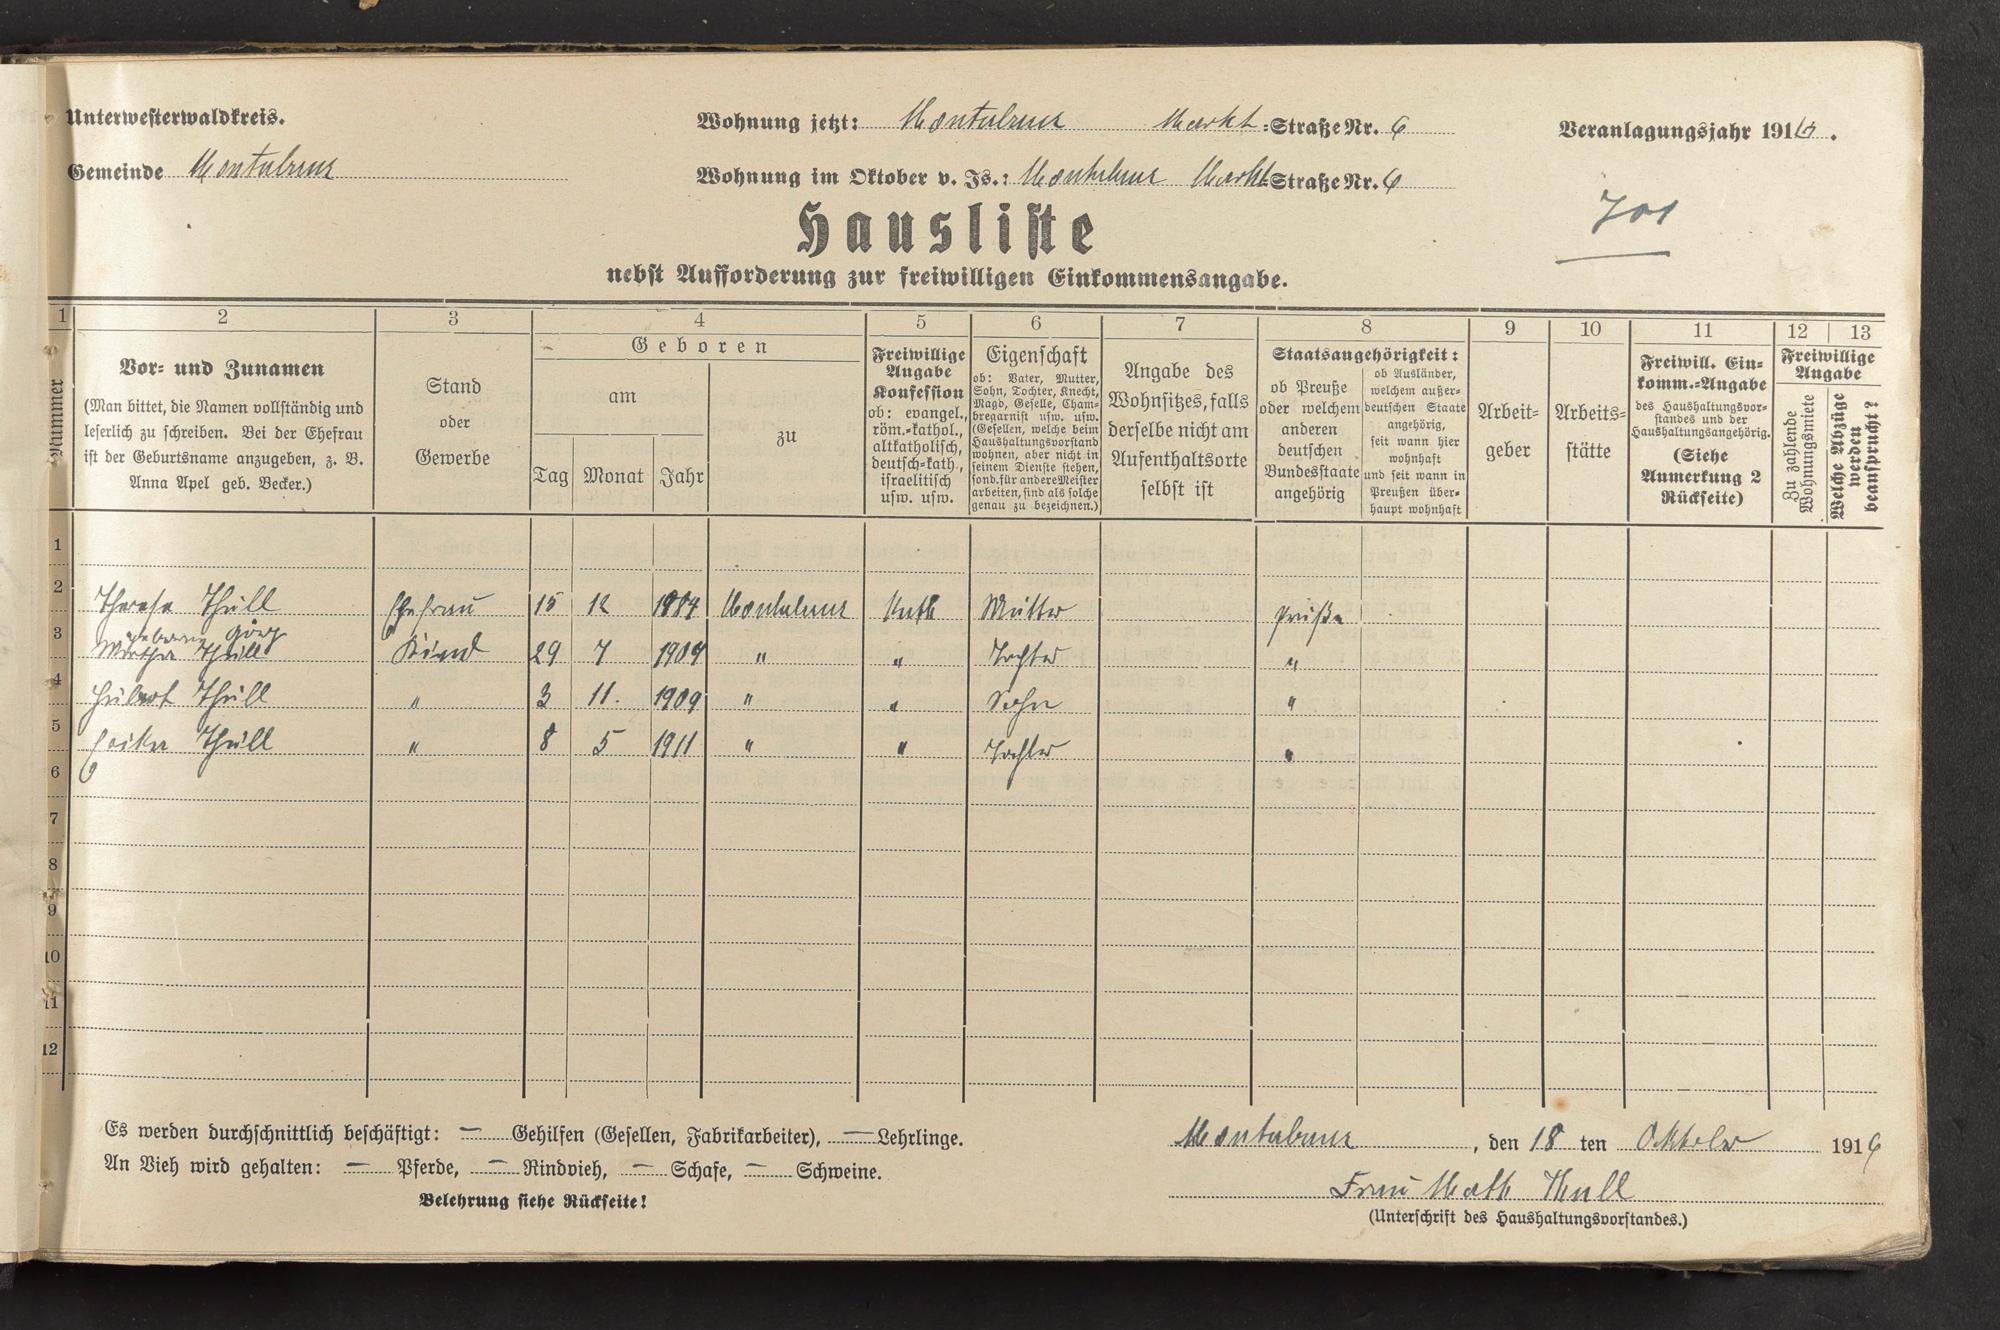 Unterwesterwaldkreis.
Wohnung jetzt: Montabaur Markt-Straße Nr. 6
Veranlagungsjahr 191
Gemeinde Montabaur
Wohnung im Oktober v. Js.: Montabaur Markt Straße Nr. 6
701
Hausliste
nebst Aufforderung zur freiwilligen Einkommensangabe.
1 2 3 4 5 6 7 8 9 10 11 12 13
Nummer
Vor- und Zunamen
(Man bittet, die Namen vollständig und
leserlich zu schreiben. Bei der Ehefrau
ist der Geburtsname anzugeben, z. B.
Anna Apel geb. Becker.)
Stand
oder
Gewerbe
Geboren
am
Tag Monat Jahr
zu
Freiwillige
Angabe
Konfession
ob: evangel.,
röm.-kathol.,
altkatholisch,
deutsch-kath.,
israelitisch
usw. usw.
Eigenschaft
ob: Vater, Mutter,
Sohn, Tochter, Knecht,
Magd, Geselle, Cham-
bregarnist usw. usw.
(Gesellen, welche beim
Haushaltungsvorstand
wohnen, aber nicht in
seinem Dienste stehen,
sond. für andere Meister
arbeiten, sind als solche
genau zu bezeichnen.)
Angabe des
Wohnsitzes, falls
derselbe nicht am
Aufenthaltsorte
selbst ist
Staatsangehörigkeit:
ob Preuße
oder welchem
anderen
deutschen
Bundesstaate
angehörig
ob Ausländer,
welchem außer-
deutschen Staate
angehörig,
seit wann hier
wohnhaft
und seit wann in
Preußen über-
haupt wohnhaft
Arbeit-
geber
Arbeits-
stätte
Freiwill. Ein-
komm.-Angabe
des Haushaltungsvor-
standes und der
Haushaltungsangehörig.
(Siehe
Anmerkung 2
Rückseite)
Freiwillige
Angabe
Zu zahlende
Wohnungsmiete
Welche Abzüge
werden
beansprucht?
1
2 Therese Thull Ehefrau 15 12 1884 Montabaur Kath Mutter Preuße
geborene Görg
3 Thull Kind 29 7 1904 " " Tochter "
4 Hubert Thull " 3 11. 1909 " " Sohn "
5 Thull " 8 5 1911 " " Tochter "
6
7
8
9
10
11
12
Es werden durchschnittlich beschäftigt: — Gehilfen (Gesellen, Fabrikarbeiter), — Lehrlinge.
An Vieh wird gehalten: — Pferde, — Rindvieh, — Schafe, — Schweine.
Belehrung siehe Rückseite!
Montabaur, den 18 ten Oktober 1916
Frau Math Thull
(Unterschrift des Haushaltungsvorstandes.)